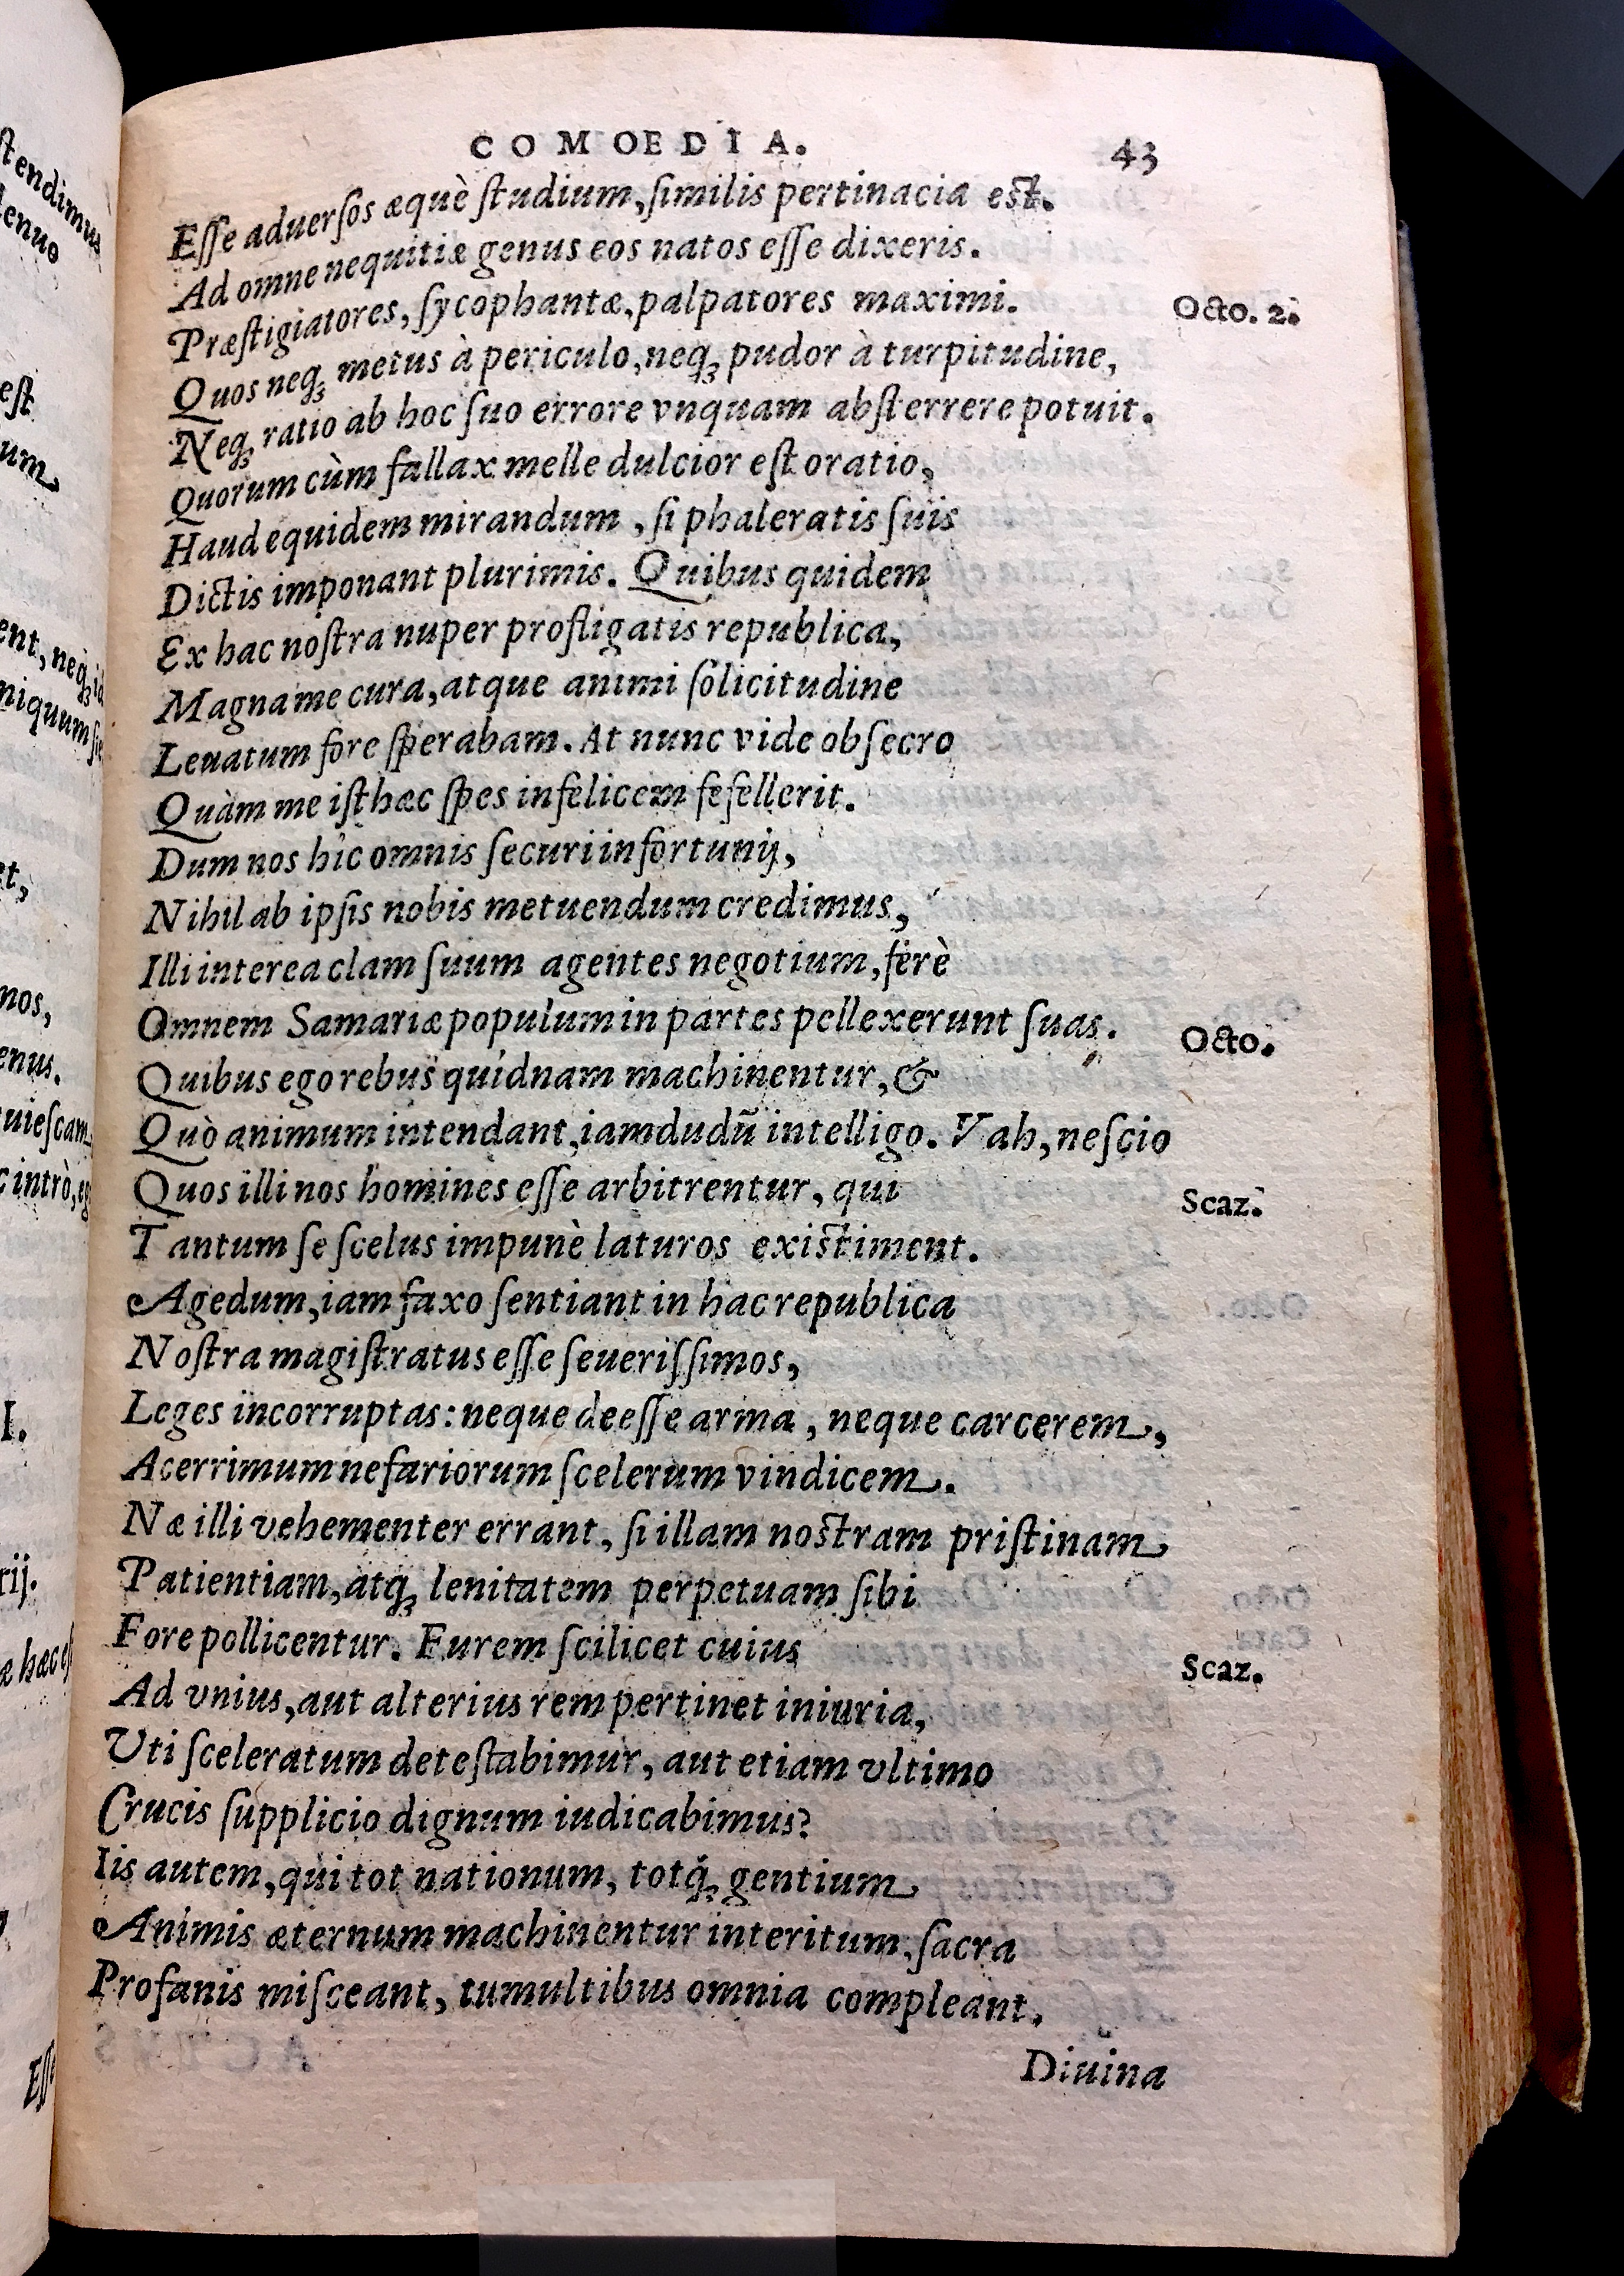 COMOEDIA. 43
Eſſe aduerſos æquè ſtudium, ſimilis pertinacia est.
Ad omne nequitiæ genus eos natos eſſe dixeris.
Præſtigiatores, ſycophantæ, palpatores maximi. Octo. 2.
Quos neqꝫ metus à periculo, neqꝫ pudor à turpitudine,
Neqꝫ ratio ab hoc ſuo errore vnquam abſterrere potuit.
Quorum cùm fallax melle dulcior eſt oratio,
Haud equidem mirandum, ſi phaleratis ſuis
Dictis imponant plurimis. Quibus quidem
Ex hac noſtra nuper profligatis republica,
Magna me cura, atque animi ſolicitudine
Leuatum fore ſperabam. At nunc vide obſecro
Quàm me iſthæc ſpes infelicem fefellerit.
Dum nos hîc omnis ſecuri infortunij,
Nihil ab ipſis nobis metuendum credimus,
Illi interea clam ſuum agentes negotium, ferè
Omnem Samariæ populum in partes pellexerunt ſuas.
Octo.
Quibus ego rebus quidnam machinentur, &
Quò animum intendant, iamdudū intelligo. Vah, neſcio
Quos illi nos homines eſſe arbitrentur, qui
Scaz.
Tantum ſe ſcelus impunè laturos existiment.
Agedum, iam faxo ſentiant in hac republica
Noſtra magiſtratus eſſe ſeueriſſimos,
Leges incorruptas: neque deeſſe arma, neque carcerem,
Acerrimum nefariorum ſcelerum vindicem.
Næ illi vehementer errant, ſi illam nostram priſtinam
Patientiam, atqꝫ lenitatem perpetuam ſibi
Fore pollicentur. Furem ſcilicet cuius
Scaz.
Ad vnius, aut alterius rem pertinet iniuria,
Vti ſceleratum deteſtabimur, aut etiam vltimo
Crucis ſupplicio dignum iudicabimus?
Iis autem, qui tot nationum, totq́ꝫ gentium
Animis æternum machinentur interitum, ſacra
Profanis miſceant, tumultibus omnia compleant,
Diuina